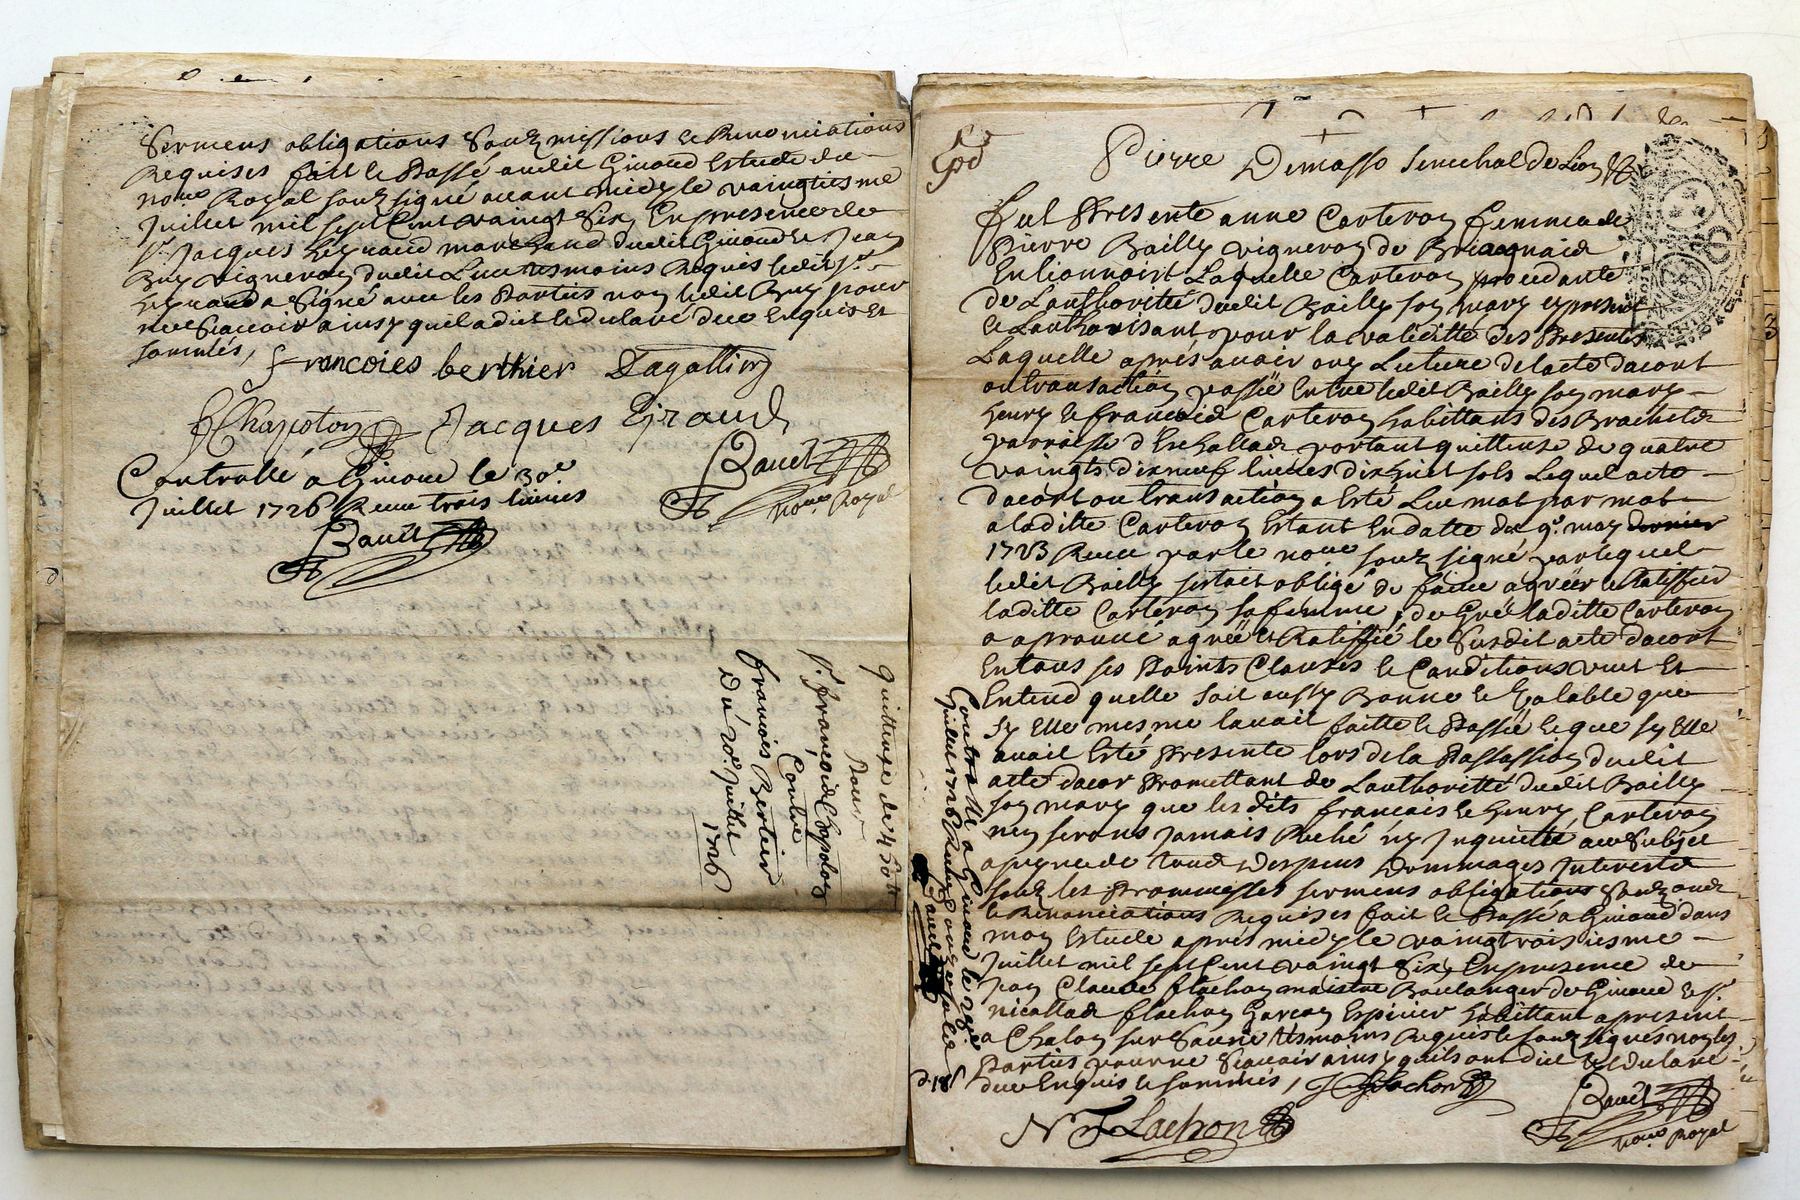 Sermens obligations Soubz missions et Renonciations
Requises fait et Passé audit Givord Estude du
nore Royal soubz signé avant midy le vaingtiesme
Juillet mil sept Cent vaingt Six, En presence de
Sr Jacques marchand dudit Givord et Jean
Buy vigneron dudit Lieu tesmoins Requis ledit Sr
a signé avec les Parties non ledit Buy pour
ne Scavoir ainsy quil a dit et declaré de ce Enquis Et
sommés,
francoies berthier Dagallier
Chapoton Jacques Giraud
Controllé a Givord le 30e
Juillet 1726 Receu trois livres
nore Royal
quittance de 450 tt
Pour
Sr francois Chapoton
Contre
francois Bertier
Du 20e Juillet
1726
Pierre Demasso Senechal de Lion
fut Presente anne Carteron femme de
Pierre Bailly vigneron de
En lionnois Laquelle Carteron procedante
de Lauthoritté dudit Bailly son mary cy present
et Lauthorisant pour la validitté des Presentes
Laquelle apres avoir ouy Lecture de lacte dacort
ou transaction passée Entre ledit Bailly son mary
henry et francois Carteron habittans des
parroisse d portant quittance de quatre
vaingts dixneuf livres dixhuit sols Lequel acte
dacort ou transaction a Esté Leu mot par mot
a laditte Carteron Estant En datte du 9e may dernier
1723 Receu par le nore soubz signé par lequel
ledit Bailly sestoit obligé de faire agréer et Ratiffier
laditte Carteron sa femme, de Gré laditte Carteron
a aprouvé agréé et Ratiffié le Susdit acte dacort
En tous ses Points Clauses et Conditions veut Et
Entend quelle soit aussy Bonne et valable que
sy Elle mesme lavoit faitte et Passée et que sy Elle
avait Esté Presente lors de la Passassion dudit
acte dacor Promettant de Lauthoritté dudit Bailly
son mary que lesdits francois et henry Carteron
nen serons Jamais Reché ny Inquietté au Subjet
a peyne de tous Despens Dommages Interests
soubz les Prommesses sermens obligations
et Renonciations Requises fait et Passé a Givord dans
mon Estude apres midy le vaingtroisiesme
Juillet mil sept Cent vaingt Six, En presence de
Jean Claude flachon maistre Boulanger de Givord et Sr
nicollas flachon Garcon Epicier habittant a present
a Chalon sur Saune tesmoins Requis et soubz signés non les
Parties pour ne Scavoir ainsy quils ont dit et declaré
de ce Enquis et sommés, J C flachon
N Flachon
nore Royal
Controllé a Givord le